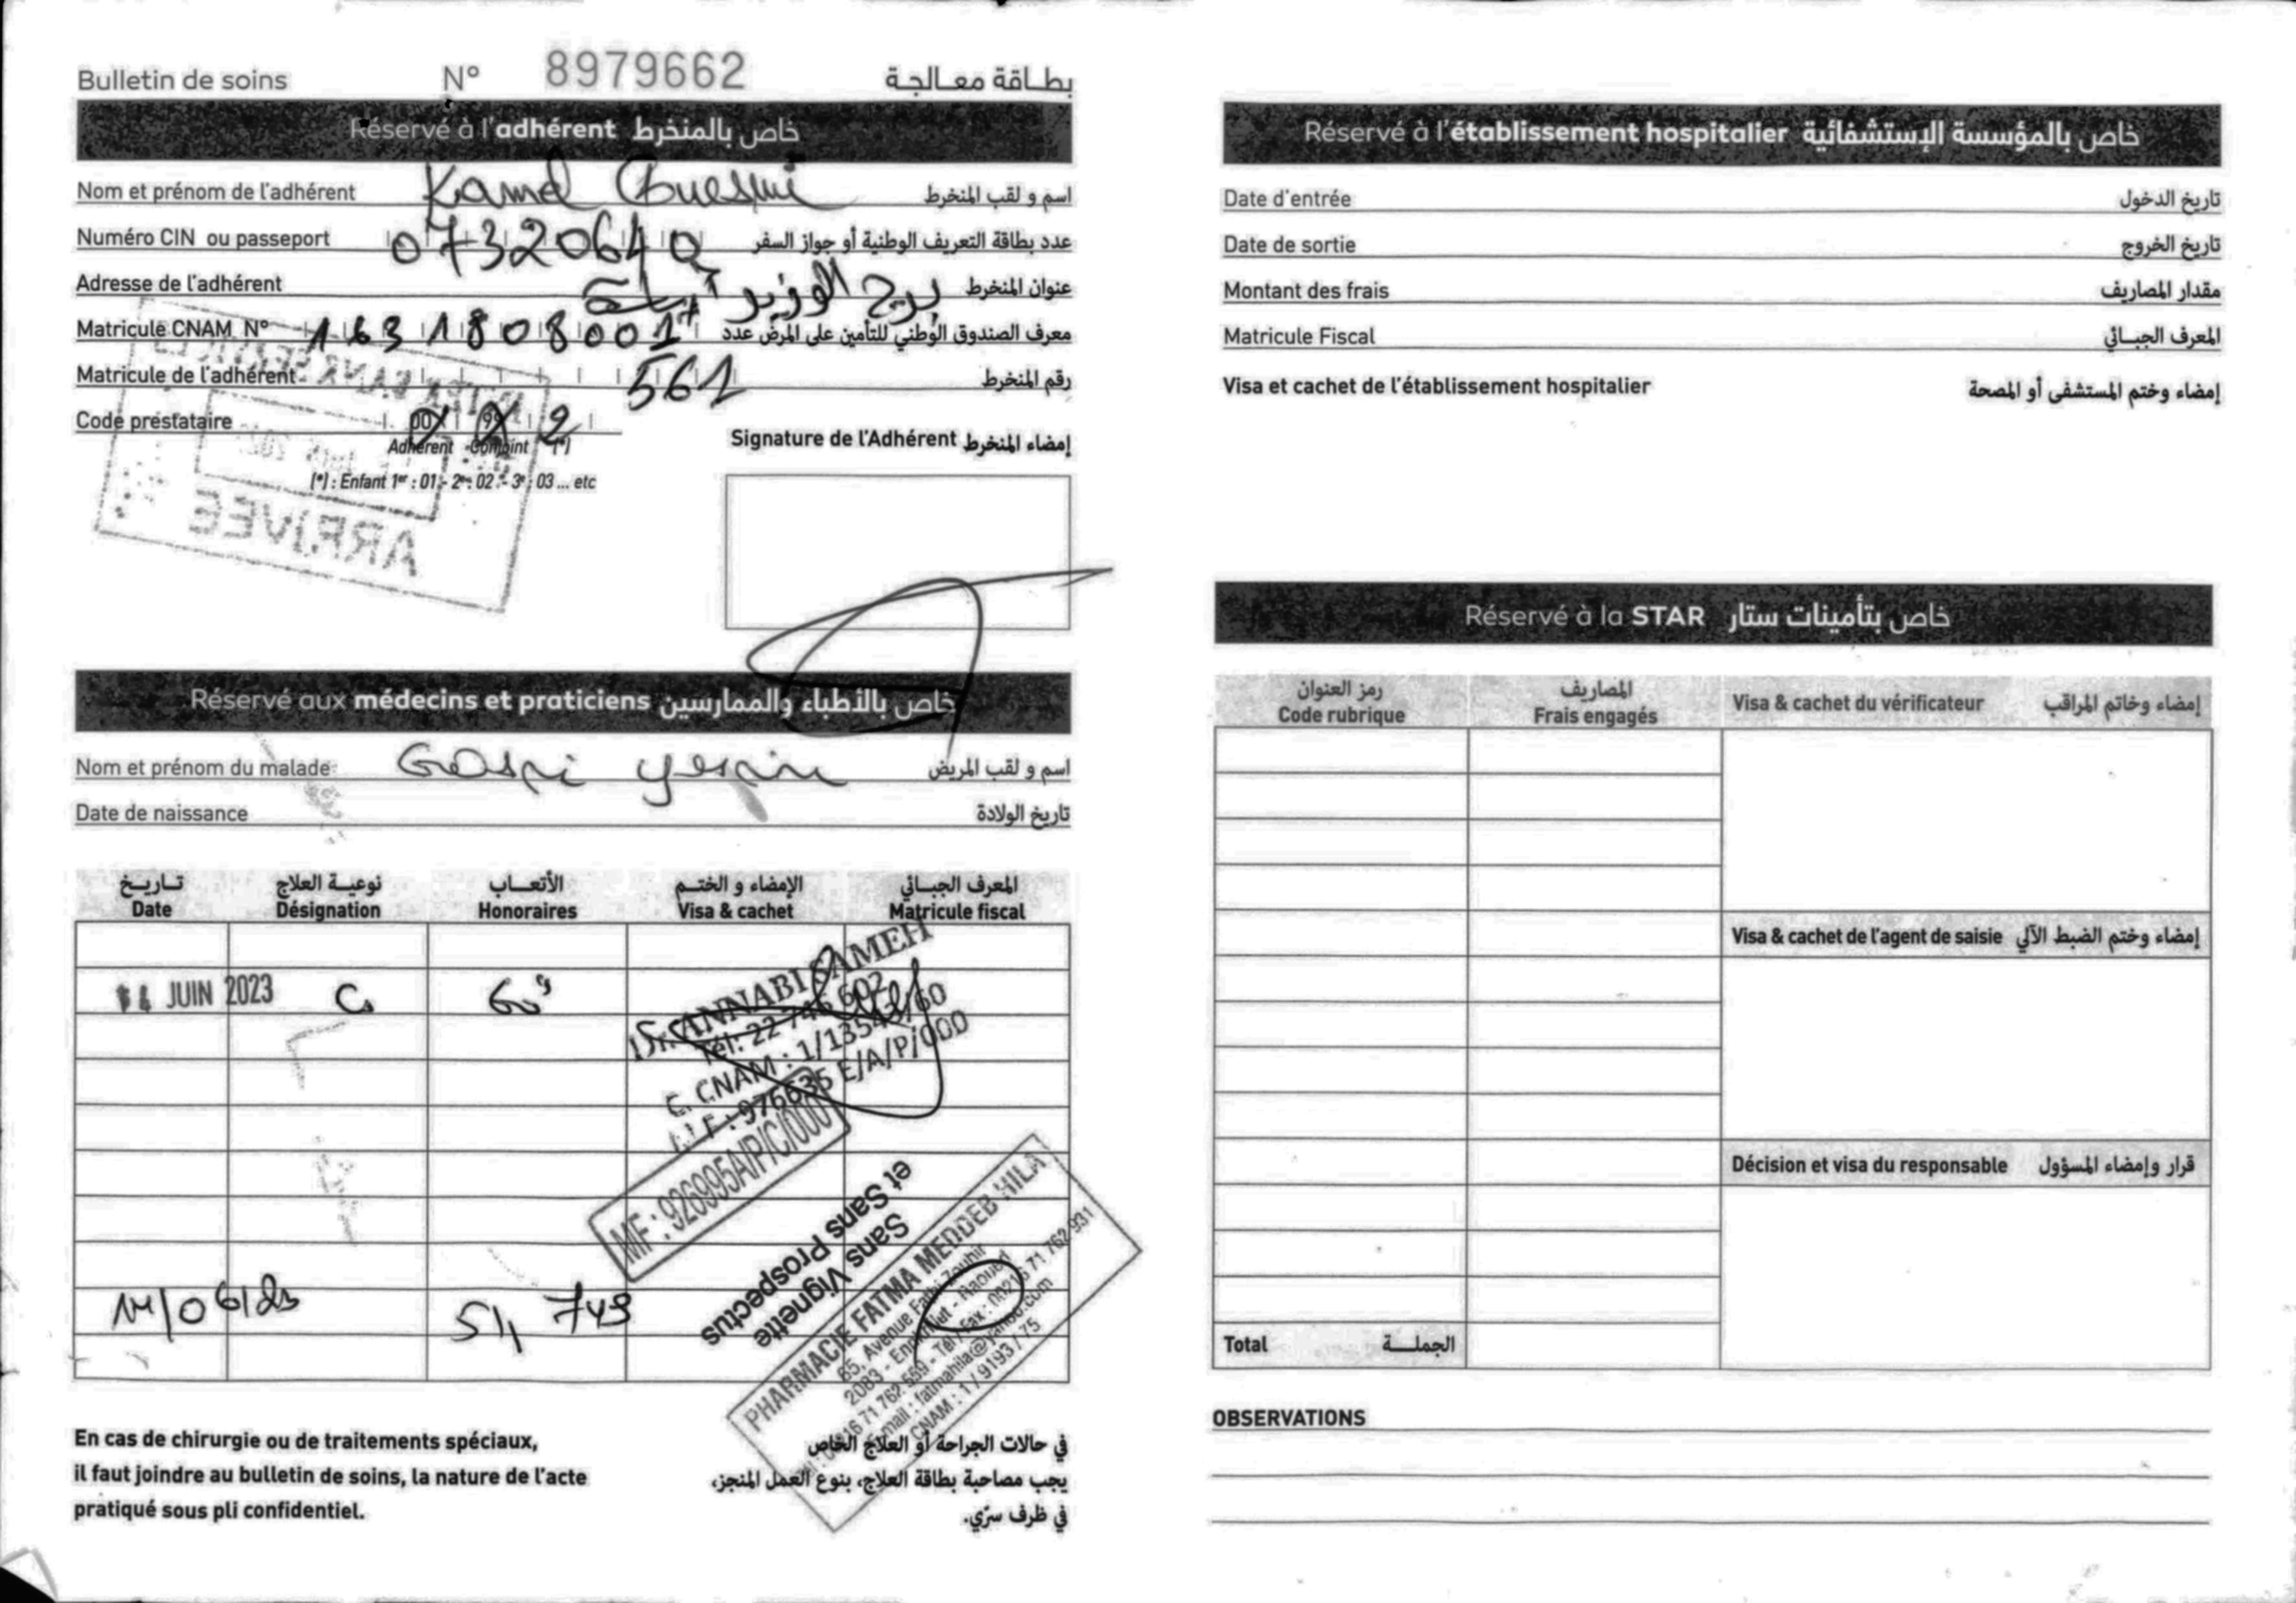 Bulletin de soins N° 8979662 بطاقة معالجة
Réservé à l'adhérent خاص بالمنخرط
Nom et prénom de l'adhérent Kamel اسم و لقب المنخرط
Numéro CIN ou passeport 07320640 عدد بطاقة التعريف الوطنية أو جواز السفر
Adresse de l'adhérent برج الوزير أريانة عنوان المنخرط
Matricule CNAM N° 163180808001 معرف الصندوق الوطني للتأمين على المرض عدد
Matricule de l'adhérent 561 رقم المنخرط
Code prestataire 00 99 2
Adhérent Conjoint (*)
(*) : Enfant 1er : 01 - 2e : 02 - 3e : 03 ... etc
ARRIVEE
Signature de l'Adhérent إمضاء المنخرط
Réservé aux médecins et praticiens خاص بالأطباء والممارسين
Nom et prénom du malade اسم و لقب المريض
Date de naissance تاريخ الولادة
تاريخ نوعية العلاج الأتعاب الإمضاء و الختم المعرف الجبائي
Date Désignation Honoraires Visa & cachet Matricule fiscal
14 JUIN 2023
Dr. ANNABI SAMEH
Tél: 22 746 602
C. CNAM : 1/13543/60
M F : 976635 E/A/P/000
MF : 926995A/P/C/000
Sans Vignette
et Sans Prospectus
14/06/23 51,749
PHARMACIE FATMA MEDDEB HILA
65, Avenue Fathi Zouhir
2083 - Ennkhilet - Raoued
Tél : 00216 71 762 559 - Tél / Fax : 00216 71 762 931
E-mail : fatmahila@yahoo.com
CNAM : 1 / 9193 / 75
En cas de chirurgie ou de traitements spéciaux,
il faut joindre au bulletin de soins, la nature de l'acte
pratiqué sous pli confidentiel.
في حالات الجراحة أو العلاج الخاص
يجب مصاحبة بطاقة العلاج، بنوع العمل المنجز،
في ظرف سرّي.
Réservé à l'établissement hospitalier خاص بالمؤسسة الإستشفائية
Date d'entrée تاريخ الدخول
Date de sortie تاريخ الخروج
Montant des frais مقدار المصاريف
Matricule Fiscal المعرف الجبائي
Visa et cachet de l'établissement hospitalier إمضاء وختم المستشفى أو المصحة
Réservé à la STAR خاص بتأمينات ستار
رمز العنوان المصاريف
Code rubrique Frais engagés Visa & cachet du vérificateur إمضاء وخاتم المراقب
Visa & cachet de l'agent de saisie إمضاء وختم الضبط الآلي
Décision et visa du responsable قرار وإمضاء المسؤول
Total الجملة
OBSERVATIONS